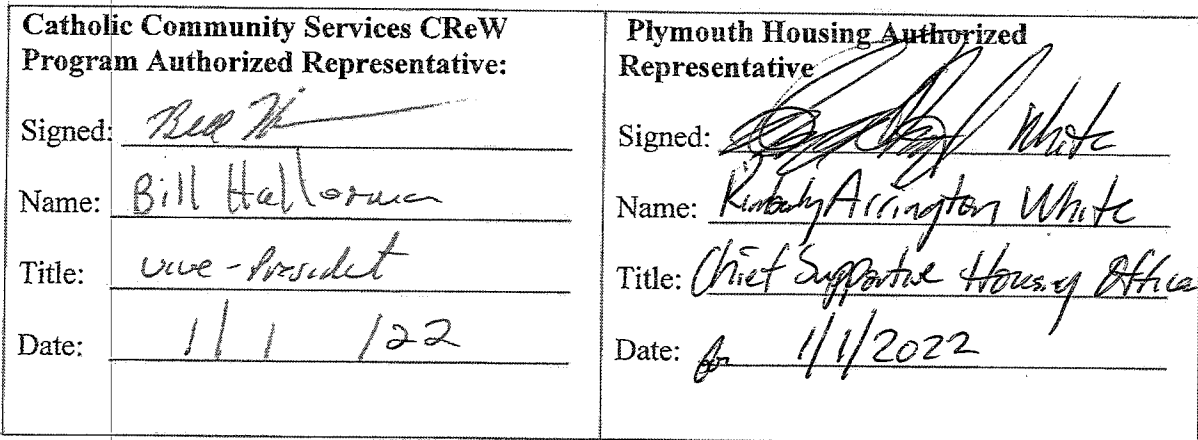 Catholic Community Services CReW
Program Authorized Representative:
Signed: Bill
Name: Bill Hallerman
Title: Vice-President
Date: 1/1/22
Plymouth Housing Authorized
Representative
Signed: White
Name: Kimberly Arrington White
Title: Chief Supportive Housing Office
Date: for 1/1/2022